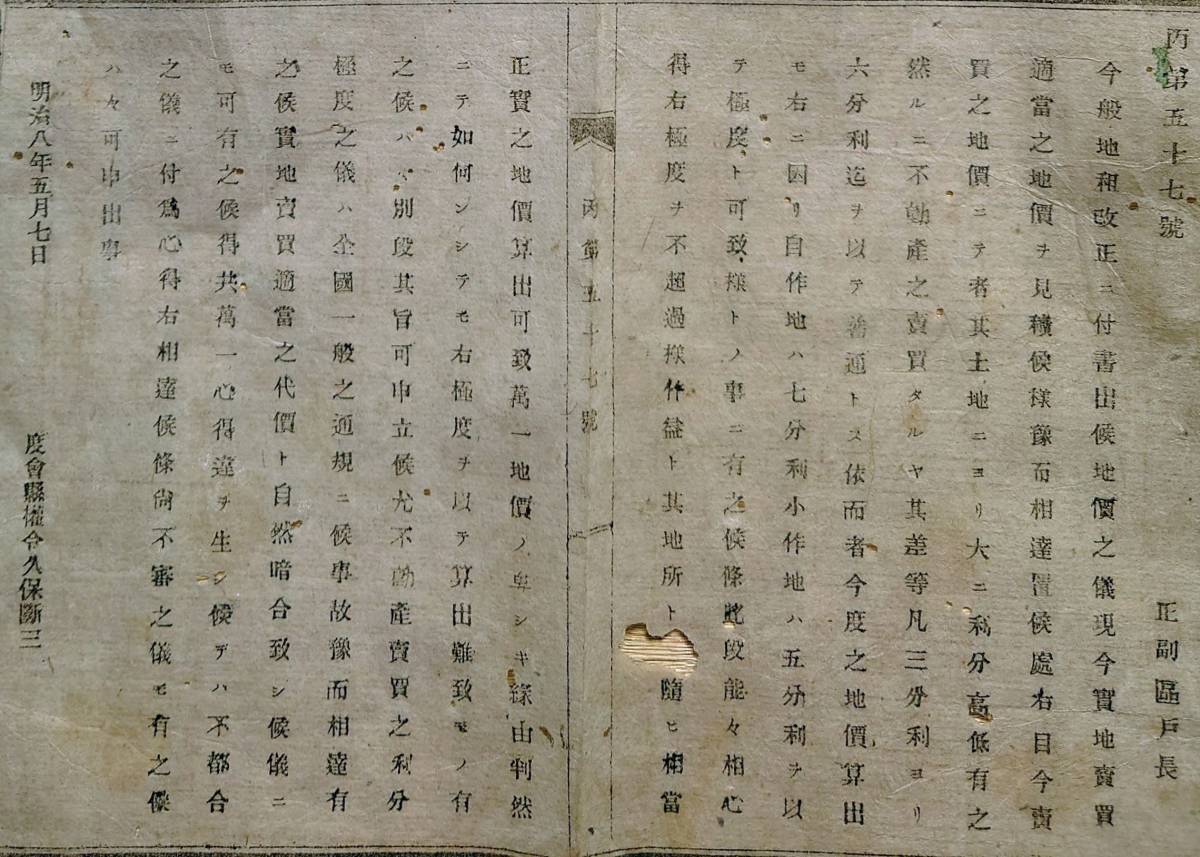 丙第五十七號
正副區戸長
今般地租改正ニ付書出候地價之儀現今實地賣買
適當之地價ヲ見積候樣豫而相達置候處右目今賣
買之地價ニテ者其土地ニヨリ大ニ利分高低有之
然ルニ不動產之賣買タルヤ其差等凡三分利ヨリ
六分利迄ヲ以テ普通トス依而者今度之地價算出
モ右ニ因リ自作地ハ七分利小作地ハ五分利ヲ以
テ極度ト可致樣トノ事ニ有之候條此段能々相心
得右極度ヲ不超過樣作益ト其地所ト隨ヒ相當
丙第五十七號
正實之地價算出可致萬一地價ノ卑シキ緣由判然
ニテ如何ンシテモ右極度ヲ以テ算出難致モノ有
之候ハヾ別段其旨可申立候尤不動產賣買之利分
極度之儀ハ全國一般之通規ニ候事故豫而相達有
之候實地賣買適當之代價ト自然暗合致シ候儀ニ
モ可有之候得共萬一心得違ヲ生シ候デハ不都合
之儀ニ付爲心得右相達候條尙不審之儀モ有之候
ハヾ可申出事
明治八年五月七日
度會縣權令久保斷三